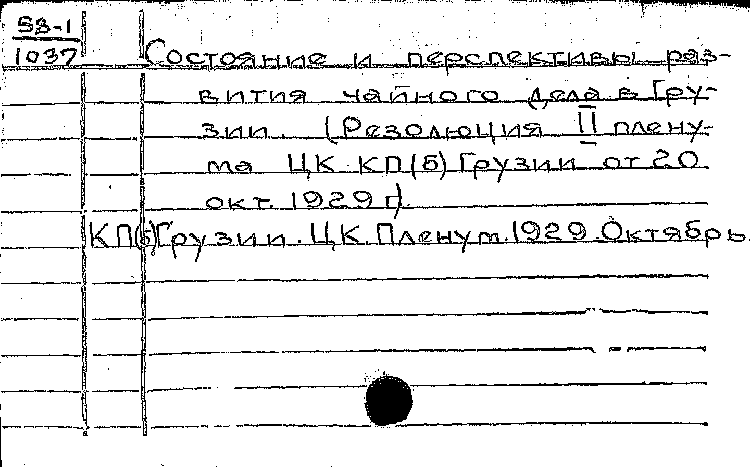 58-1
1037 Состояние и перспективы раз-
вития чайного дела в Гру-
зии. (Резолюция II плену-
ма ЦК КП(б) Грузии от 20
окт. 1929 г).
КП(б) Грузии. ЦК. Пленум. 1929. Октябрь